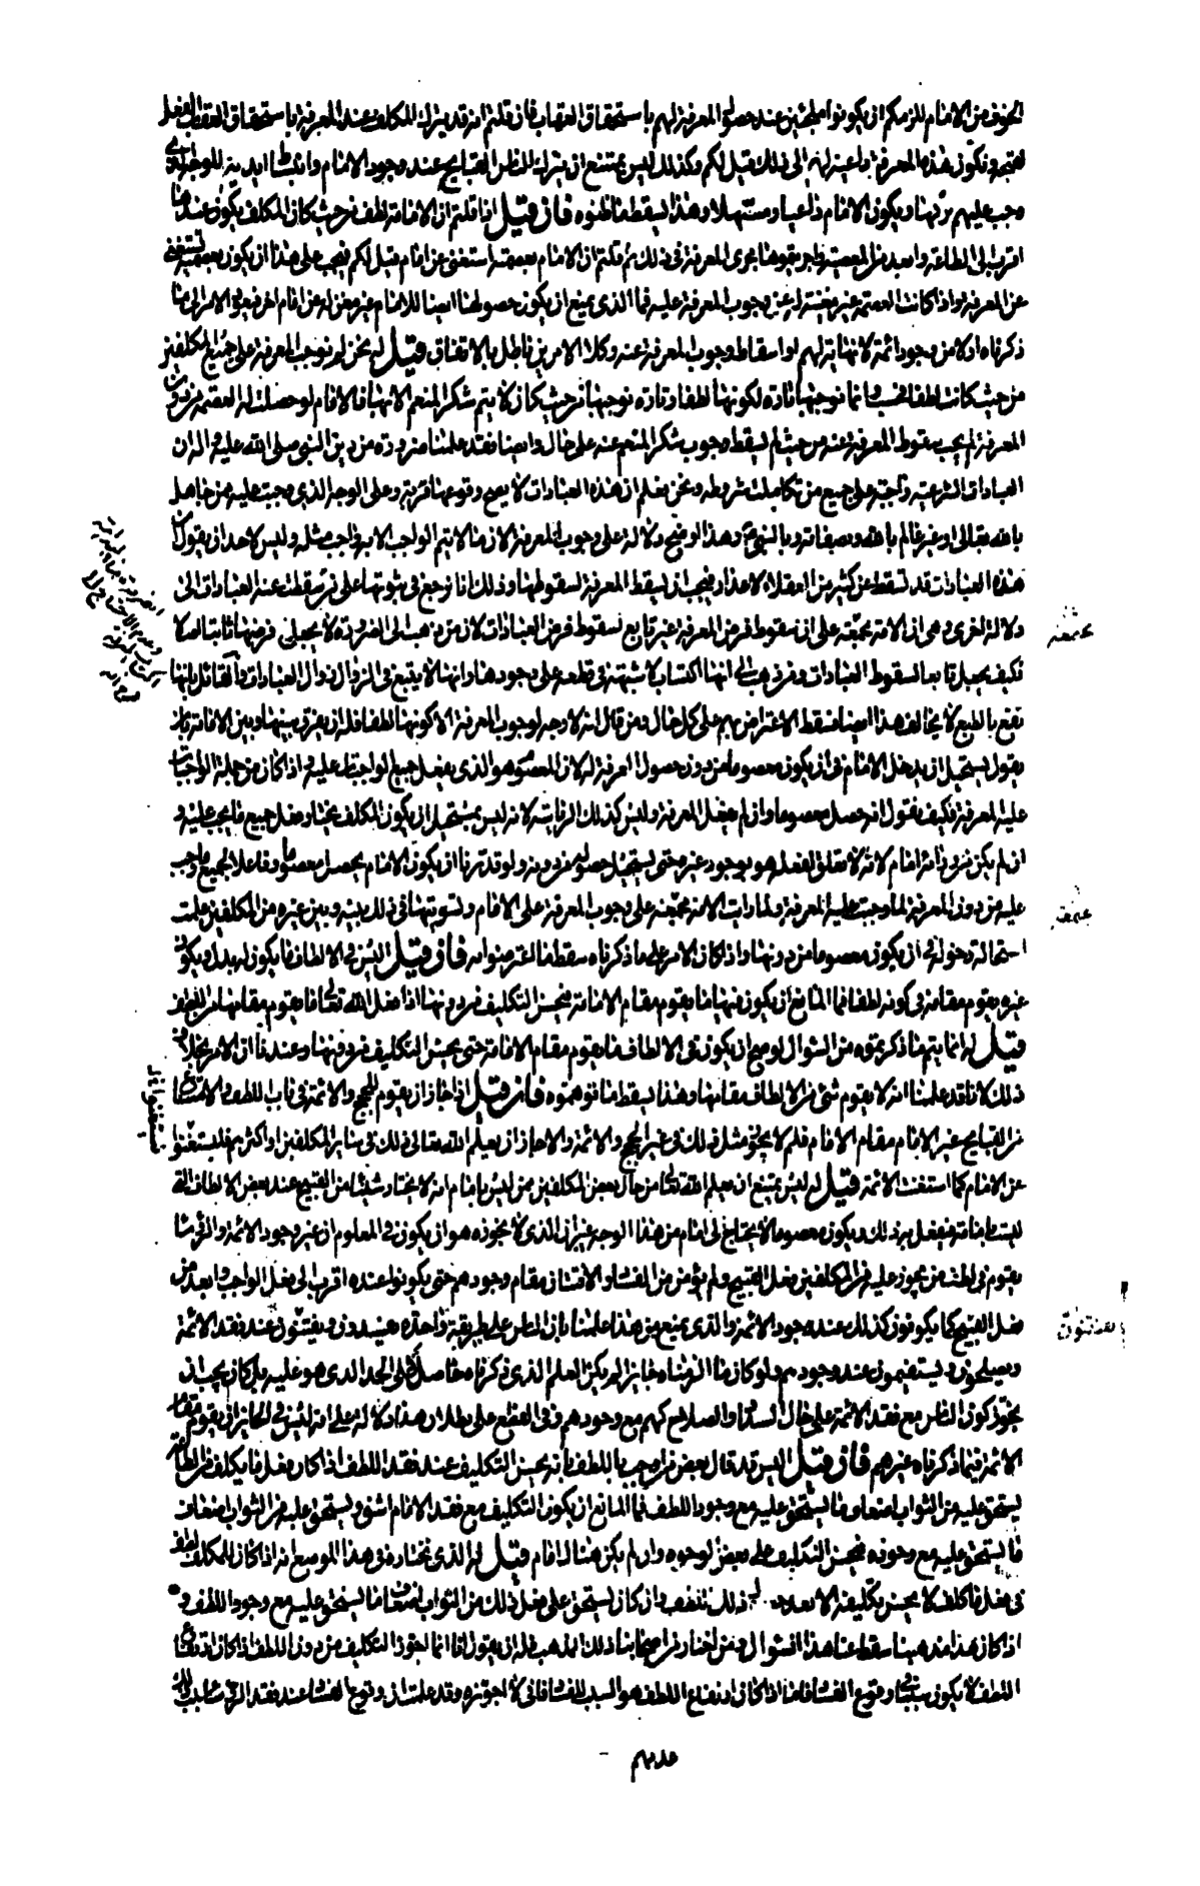 الخوف من الامام للزمكم ان يكونوا ملجئين عند حصول المعرفة لهم باستحقاق العقاب فان قلتم انه قد يترك المكلف عند المعرفة باستحقاق العقاب الفعل
لقبحه وتكون هذه المعرفة داعية له الى ذلك قيل لكم وكذلك ليس يمتنع ان يترك الناس القبايح عند وجود الامام وانبساط يده للوجه الذي
وجب عليهم تركها ويكون الامام داعيا ومسهلا وهذا يسقط ما ظنوه فان قيل اذا قلتم ان الامامة لطف من حيث كان المكلف يكون عندها
اقرب الى الطاعة وابعد من المعصية واجريتموها مجرى المعرفة في ذلك ثم قلتم ان الامام بعصمته استغنى عن امام قيل لكم فيجب على هذا ان يكون بعصمته يستغنى
عن المعرفة واذا كانت العصمة غير مغنية له عن وجوب المعرفة عليه فما الذي يمنع ان يكون حصولها ايضا للامام غير مغن له عن امام اخر فيعود الامر الى ما
ذكرناه اولا من وجود ائمة لا نهاية لهم او اسقاط وجوب المعرفة عنه وكلا الامرين باطل بالاتفاق قيل له نحن لم نوجب المعرفة على جميع المكلفين
من حيث كانت لطفا فحسب وانما نوجبها تارة لكونها لطفا وتارة نوجبها من حيث كان لا يتم شكر المنعم الا بها فالامام لو حصلت له العصمة من دون
المعرفة لم يجب سقوط المعرفة عنه من حيث لم يسقط وجوب شكر المنعم عنه على حال وايضا فقد علمنا ضرورة من دين النبي صلى الله عليه واله ان
العبادات الشرعية واجبة على جميع من تكاملت شروطه ونحن نعلم ان هذه العبادات لا يصح وقوعها قربة وعلى الوجه الذي وجبت عليه من جاهل
بالله تعالى او غير عالم بالله وصفاته وبالنبي وهذا اوضح دلالة على وجوب المعرفة لان ما لا يتم الواجب الا به واجب مثله وليس لاحد ان يقول ان
هذه العبادات قد تسقط عن كثير من العقلاء لاعذار فيجب ان يسقط المعرفة لسقوطها وذلك انا نرجع في ثبوتها على من سقطت عنه العبادات الى
دلالة اخرى وهي ان الامة مجتمعة على ان سقوط فرض المعرفة غير تابع لسقوط فرض العبادات لان من ذهب الى الضرورة لا يجعل فرضها ثابتا اصلا
فكيف يجعل تابعا لسقوط العبادات ومن ذهب الى انها اكتساب لا شبهة في قطعه على وجوبها وانها لا يتبع في الزوال زوال العبادات والقائل بانها
تقع بالطبع لا يخالف هذا ايضا فسقط الاعتراض بهم على كل حال ومن قال انه لا وجه لوجوب المعرفة الا كونها لطفا فله ان يفرق بينها وبين الامامة بان
يقول يستحيل ان يدخل الامام في ان يكون معصوما من دون حصول المعرفة له لان المعصوم هو الذي يفعل جميع الواجبات عليه واذا كان من جملة الواجبات
عليه المعرفة فكيف يقول انه حصل معصوما وان لم يفعل المعرفة وليس كذلك الرياسة لانه ليس بمستحيل ان يكون المكلف مختارا لفعل جميع ما يجب عليه و
ان لم يكن من ورائه امام لانه لا تعلق لفعله هو بوجود غيره حتى يستحيل حصوله من دونه ولو قدرنا ان يكون الامام يحصل معصوما وفاعلا لجميع ما وجب
عليه من دون المعرفة لما وجبت عليه المعرفة ولما رايت الامة مجتمعة على وجوب المعرفة على الامام وتسويتها في ذلك بينه وبين غيره من المكلفين علمت
استحالة دخوله في ان يكون معصوما من دونها واذا كان الامر على ما ذكرناه سقط ما اعترضوا به فان قيل اليس في الالطاف ما يكون له بدل ويكون
غيره يقوم مقامه في كونه لطفا فما المانع ان يكون فيها ما يقوم مقام الامامة فيحسن التكليف من دونها اذا فعل الله تعالى ما يقوم مقامها من اللطف
قيل له انما يتم ما ذكرتموه من السؤال لو صح ان يكون في الالطاف ما يقوم مقام الامامة حتى يحسن التكليف من دونها وعندنا ان الامر بخلاف
ذلك لانا قد علمنا انه لا يقوم شئ من الالطاف مقامها وهذا يسقط ما توهموه فان قيل اذا جاز ان يقوم للحجج والائمة في باب اللطف والامتناع
من القبايح غير الامام مقام الامام فلم لا يجوز مثل ذلك في غير الحجج والائمة والا جاز ان يعلم الله تعالى ذلك في سائر المكلفين او اكثرهم فليستغنوا
عن الامام كما استغنت الائمة قيل له ليس يمتنع ان يعلم الله تعالى من حال بعض المكلفين ممن ليس بامام انه لا يختار شيئا من القبيح عند بعض الالطاف التي
ليست بامامة فيفعل به ذلك ويكون معصوما لا يحتاج الى امام من هذا الوجه غير ان الذي لا يجوزه هو ان يكون في المعلوم ان غير وجود الائمة والرؤساء
يقوم في لطف من يجوز عليه من المكلفين فعل القبيح ولم يؤمن من الفساد والافساد مقام وجودهم حتى يكونوا عنده اقرب الى فعل الواجب وابعد من
فعل القبيح كما يكونون كذلك عند وجود الائمة والذي يمنع من هذا علمنا بان الناس على طريقة واحدة يفسدون ويفتنون عند فقد الائمة
ويصلحون ويستقيمون عند وجودهم ولو كان ما الزمناه جائزا لم يكن العلم الذي ذكرناه حاصلا على الحد الذي هو عليه بل كان يجب ان
يجوز كون الناس مع فقد الائمة على حال السداد والصلاح كهم مع وجودهم وفي القطع على بطلان هذا دلالة على انه ليس في الجائز ان يقوم مقام
الائمة فيما ذكرناه غيرهم فان قيل اليس قد قال بعض من اوجب باللطف بانه يحسن التكليف عند فقد اللطف اذا كان بفعل ما يكلف من الطاعة
يستحق عليه من الثواب اضعاف ما يستحق عليه مع وجود اللطف فما المانع ان يكون التكليف مع فقد الامام اشق ويستحق عليه من الثواب اضعاف
ما يستحق عليه مع وجوده فيحسن التكليف على بعض الوجوه وان لم يكن هناك امام قيل له الذي نختاره في هذا الموضع انه اذا كان للمكلف لطف
في فعل ما كلف لا يحسن تكليفه الا بعد ذلك اللطف وان كان يستحق على فعل ذلك من الثواب اضعاف ما يستحق عليه مع وجود اللطف و
اذا كان هذا مذهبنا سقط عنا هذا السؤال ومن اختار من اصحابنا ذلك المذهب فله ان يقول انا انما اجوز التكليف من دون اللطف اذا كان ارتفاع
اللطف لا يكون سببا في وقوع الفساد فاما اذا كان ارتفاع اللطف هو السبب للفساد فاني لا اجوزه وقد علمت ان وقوع الفساد عند فقد الرؤساء سببه
عدمهم
مجتمعة
يفتنون